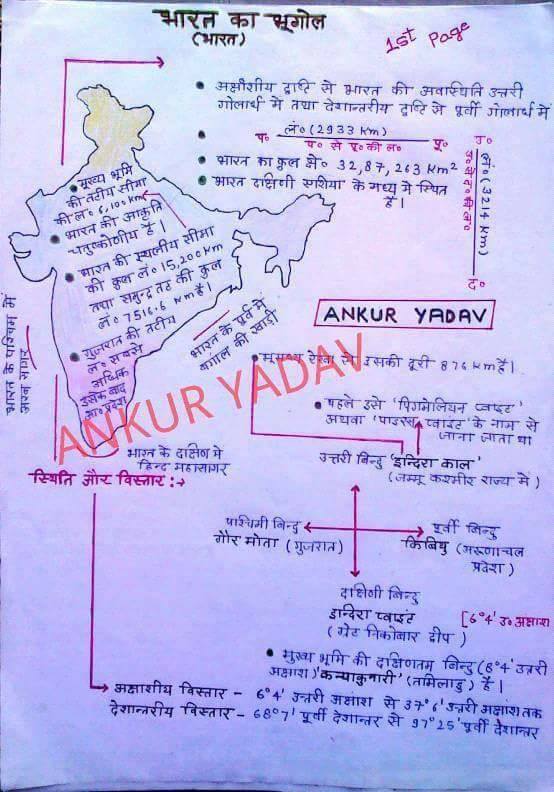 भारत का भूगोल
(भारत)
1st Page
• अक्षांशीय दृष्टि से भारत की अवस्थिति उत्तरी
गोलार्ध में तथा देशान्तरीय दृष्टि से पूर्वी गोलार्ध में
• प॰ लं॰ (2933 km) पू॰
प॰ से पू॰ की लं॰
• भारत का कुल क्षे॰ 32,87,263 km²
• भारत दक्षिणी एशिया के मध्य में स्थित
है।
उ॰
लं॰ (3214 km)
द॰
• मुख्य भूमि
की तटीय सीमा
की लं॰ 6,100 km
• भारत की आकृति
चतुष्कोणीय है।
• भारत की स्थलीय सीमा
की कुल लं॰ 15,200 km
तथा समुद्र तट की कुल
लं॰ 7516.6 km है।
• गुजरात की तटीय
लं॰ सबसे
अधिक
इसके बाद
आ॰ प्रदेश
भारत के पश्चिम में
अरब सागर
भारत के पूर्व में
बंगाल की खाड़ी
भारत के दक्षिण में
हिन्द महासागर
ANKUR YADAV
ANKUR YADAV
ANKUR YADAV
• भूमध्य रेखा से इसकी दूरी 876 km है।
• पहले इसे 'पिगमेलियन प्वाइंट'
अथवा 'पाइरस प्वाइंट' के नाम से
जाना जाता था
स्थिति और विस्तार :→
उत्तरी बिन्दु 'इन्दिरा काल'
(जम्मू कश्मीर राज्य में)
पश्चिमी बिन्दु
गौर मोता (गुजरात)
पूर्वी बिन्दु
किबिथु (अरूणाचल
प्रदेश)
दक्षिणी बिन्दु
इन्दिरा प्वाइंट
(ग्रेट निकोबार द्वीप)
[6°4' उ॰ अक्षांश
• मुख्य भूमि की दक्षिणतम बिन्दु (8°4' उत्तरी
अक्षांश) 'कन्याकुमारी' (तमिलाडु) है।
अक्षांशीय विस्तार – 6°4' उत्तरी अक्षांश से 37°6' उत्तरी अक्षांश तक
देशान्तरीय विस्तार – 68°7' पूर्वी देशान्तर से 97°25' पूर्वी देशान्तर